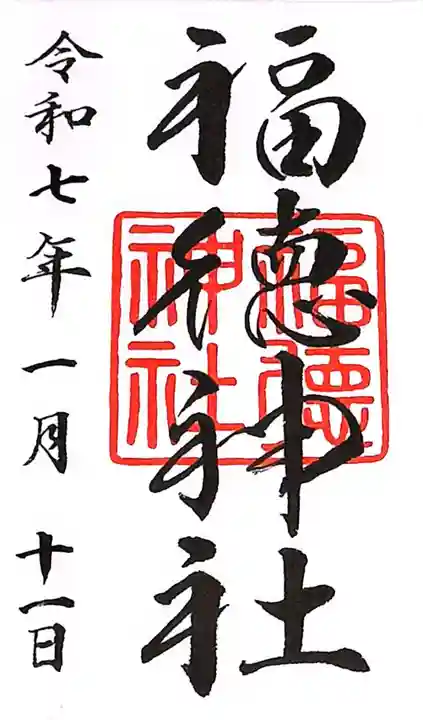 福德神社
福徳神社
令和七年一月十一日